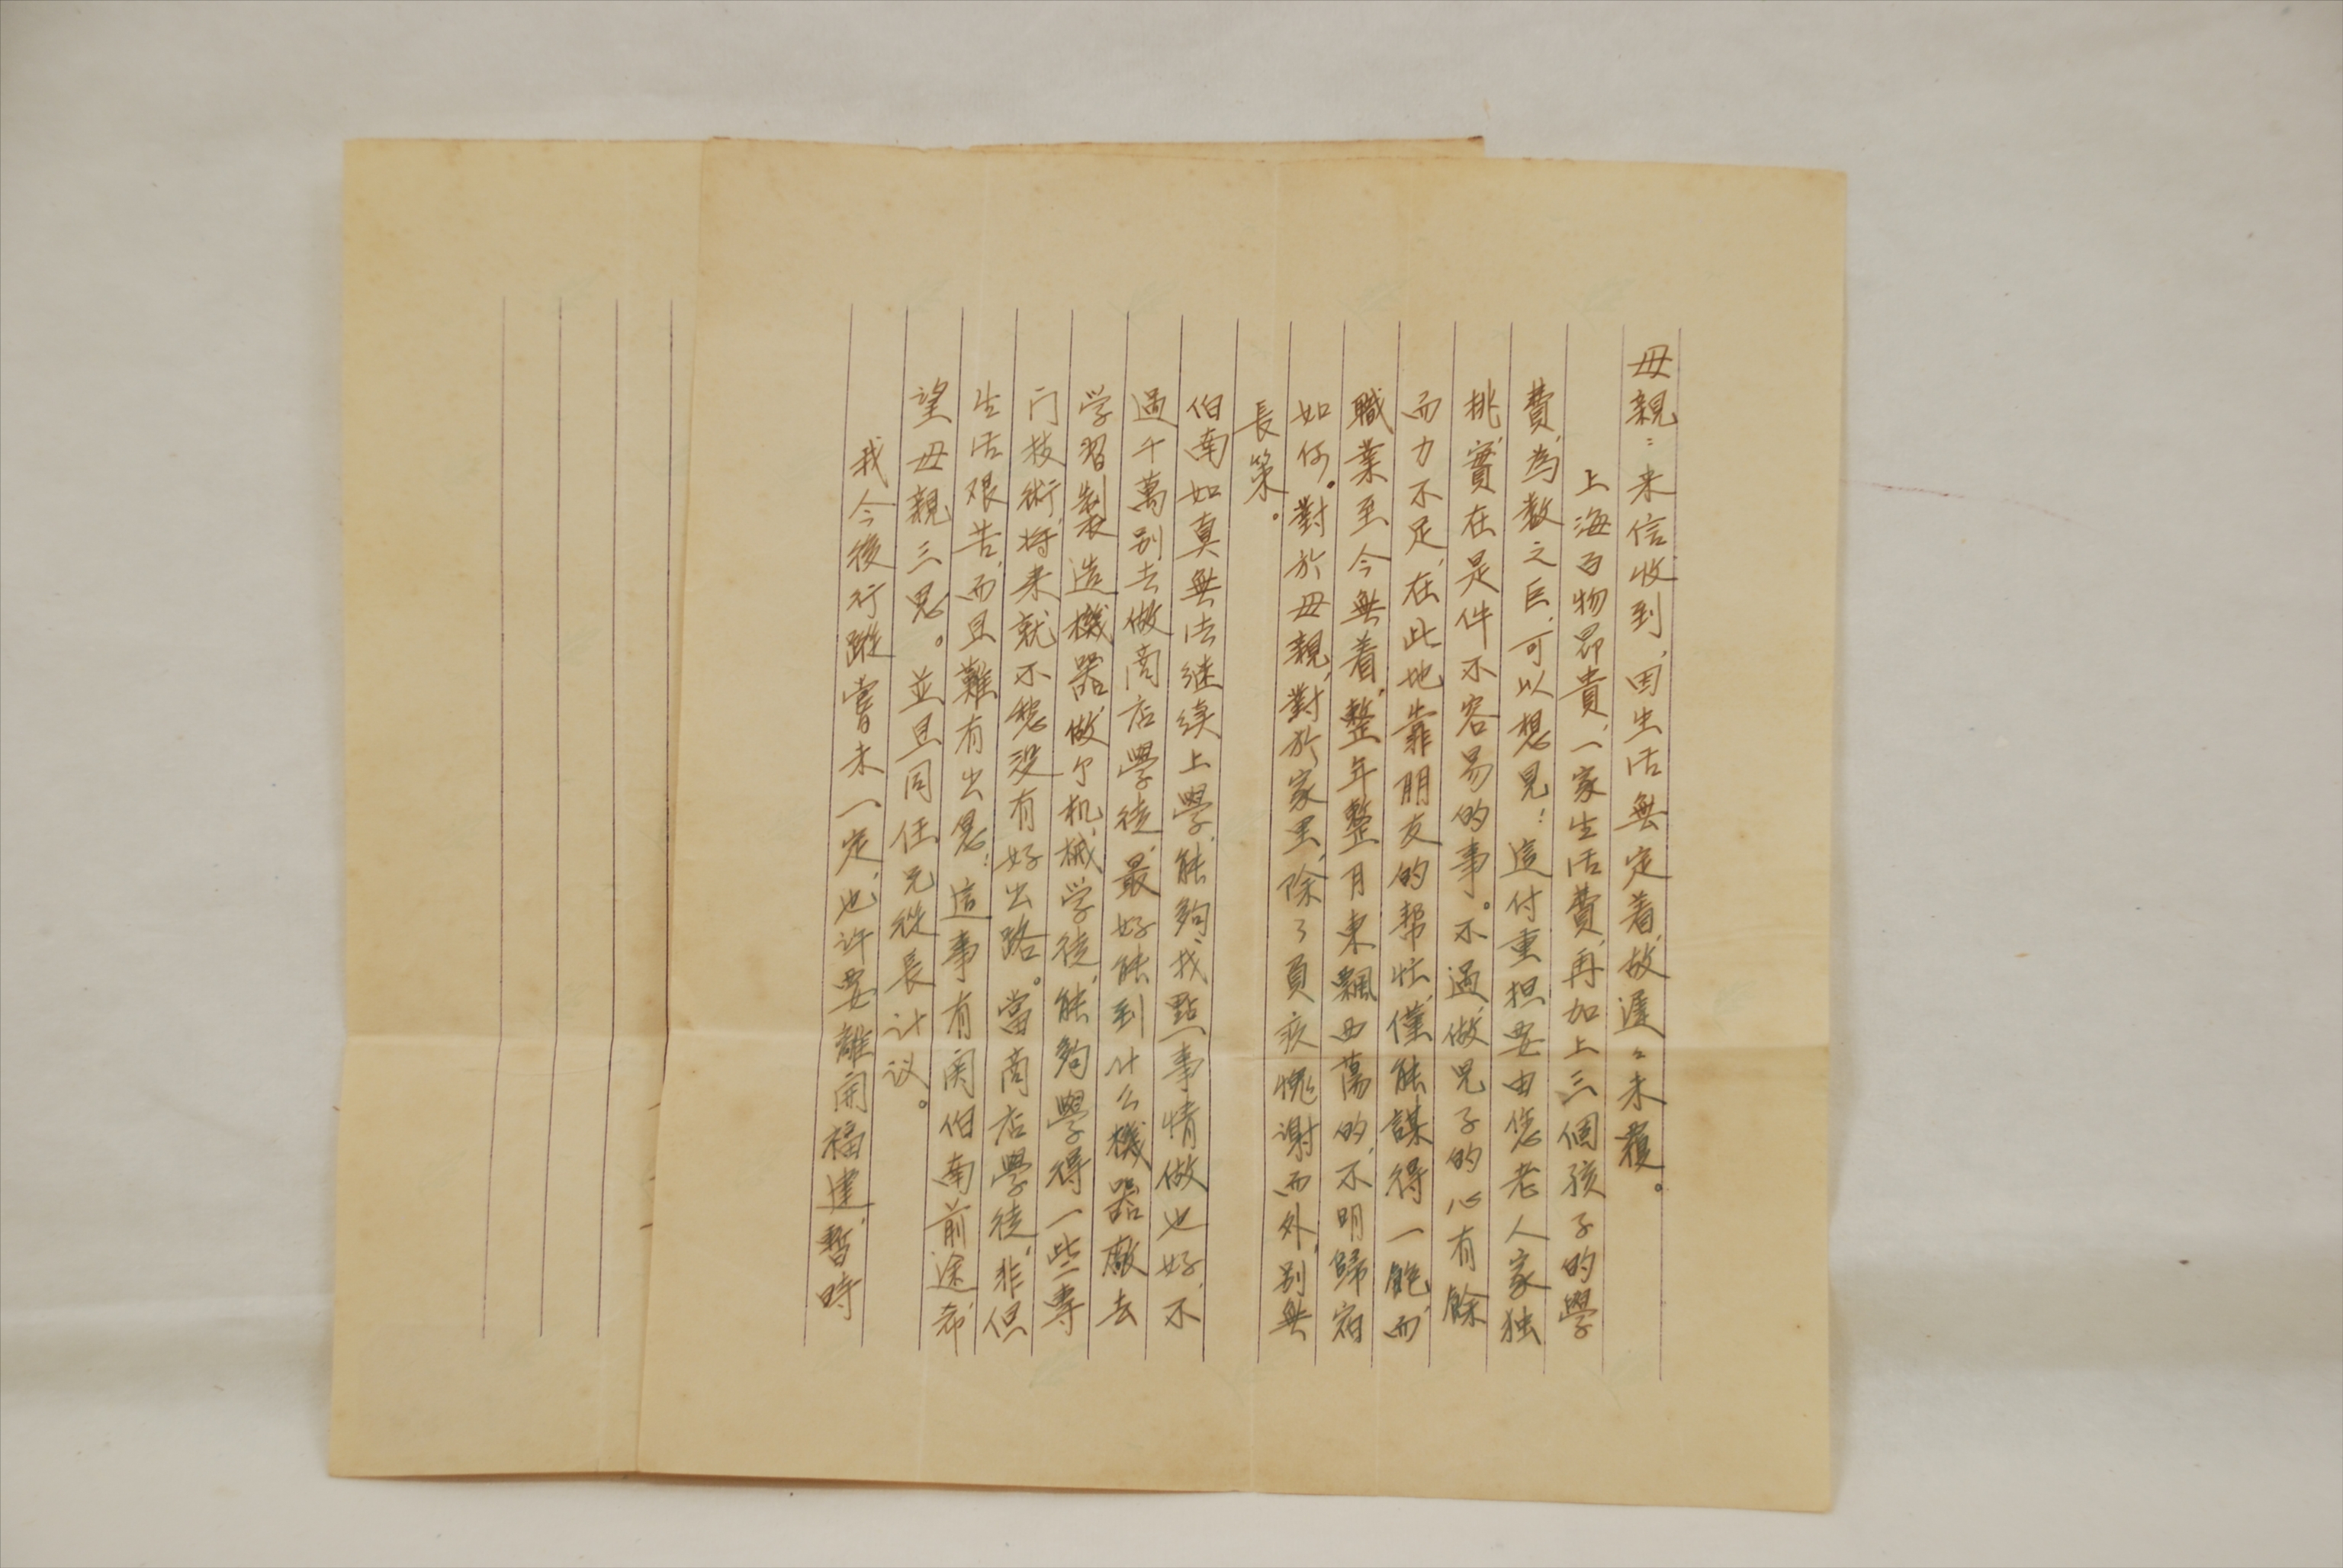 母親：来信收到，因生活無定着，故遲々未覆。
上海百物昂貴，一家生活費，再加上三個孩子的學
費，為数之巨，可以想見！這付重担要由您老人家独
挑，實在是件不容易的事。不過，做兒子的心有餘
而力不足，在此地靠朋友的帮忙，僅能謀得一飽，而
職業至今無着，整年整月東飄西蕩的，不明歸宿
如何。對於母親，對於家里，除了負疚愧谢而外，别無
長策。
伯南如真無法继续上學，能夠找點事情做也好，不
過千萬别去做商店學徒，最好能到什么機器廠去
学習製造機器，做个机械学徒，能夠學得一些專
门技術，将来就不愁没有好出路。當商店學徒，非但
生活艰苦，而且難有出息！這事有関伯南前途，希
望母親三思。並且同任兄從長计议。
我今後行蹤嘗未一定，也许要離開福建，暫時